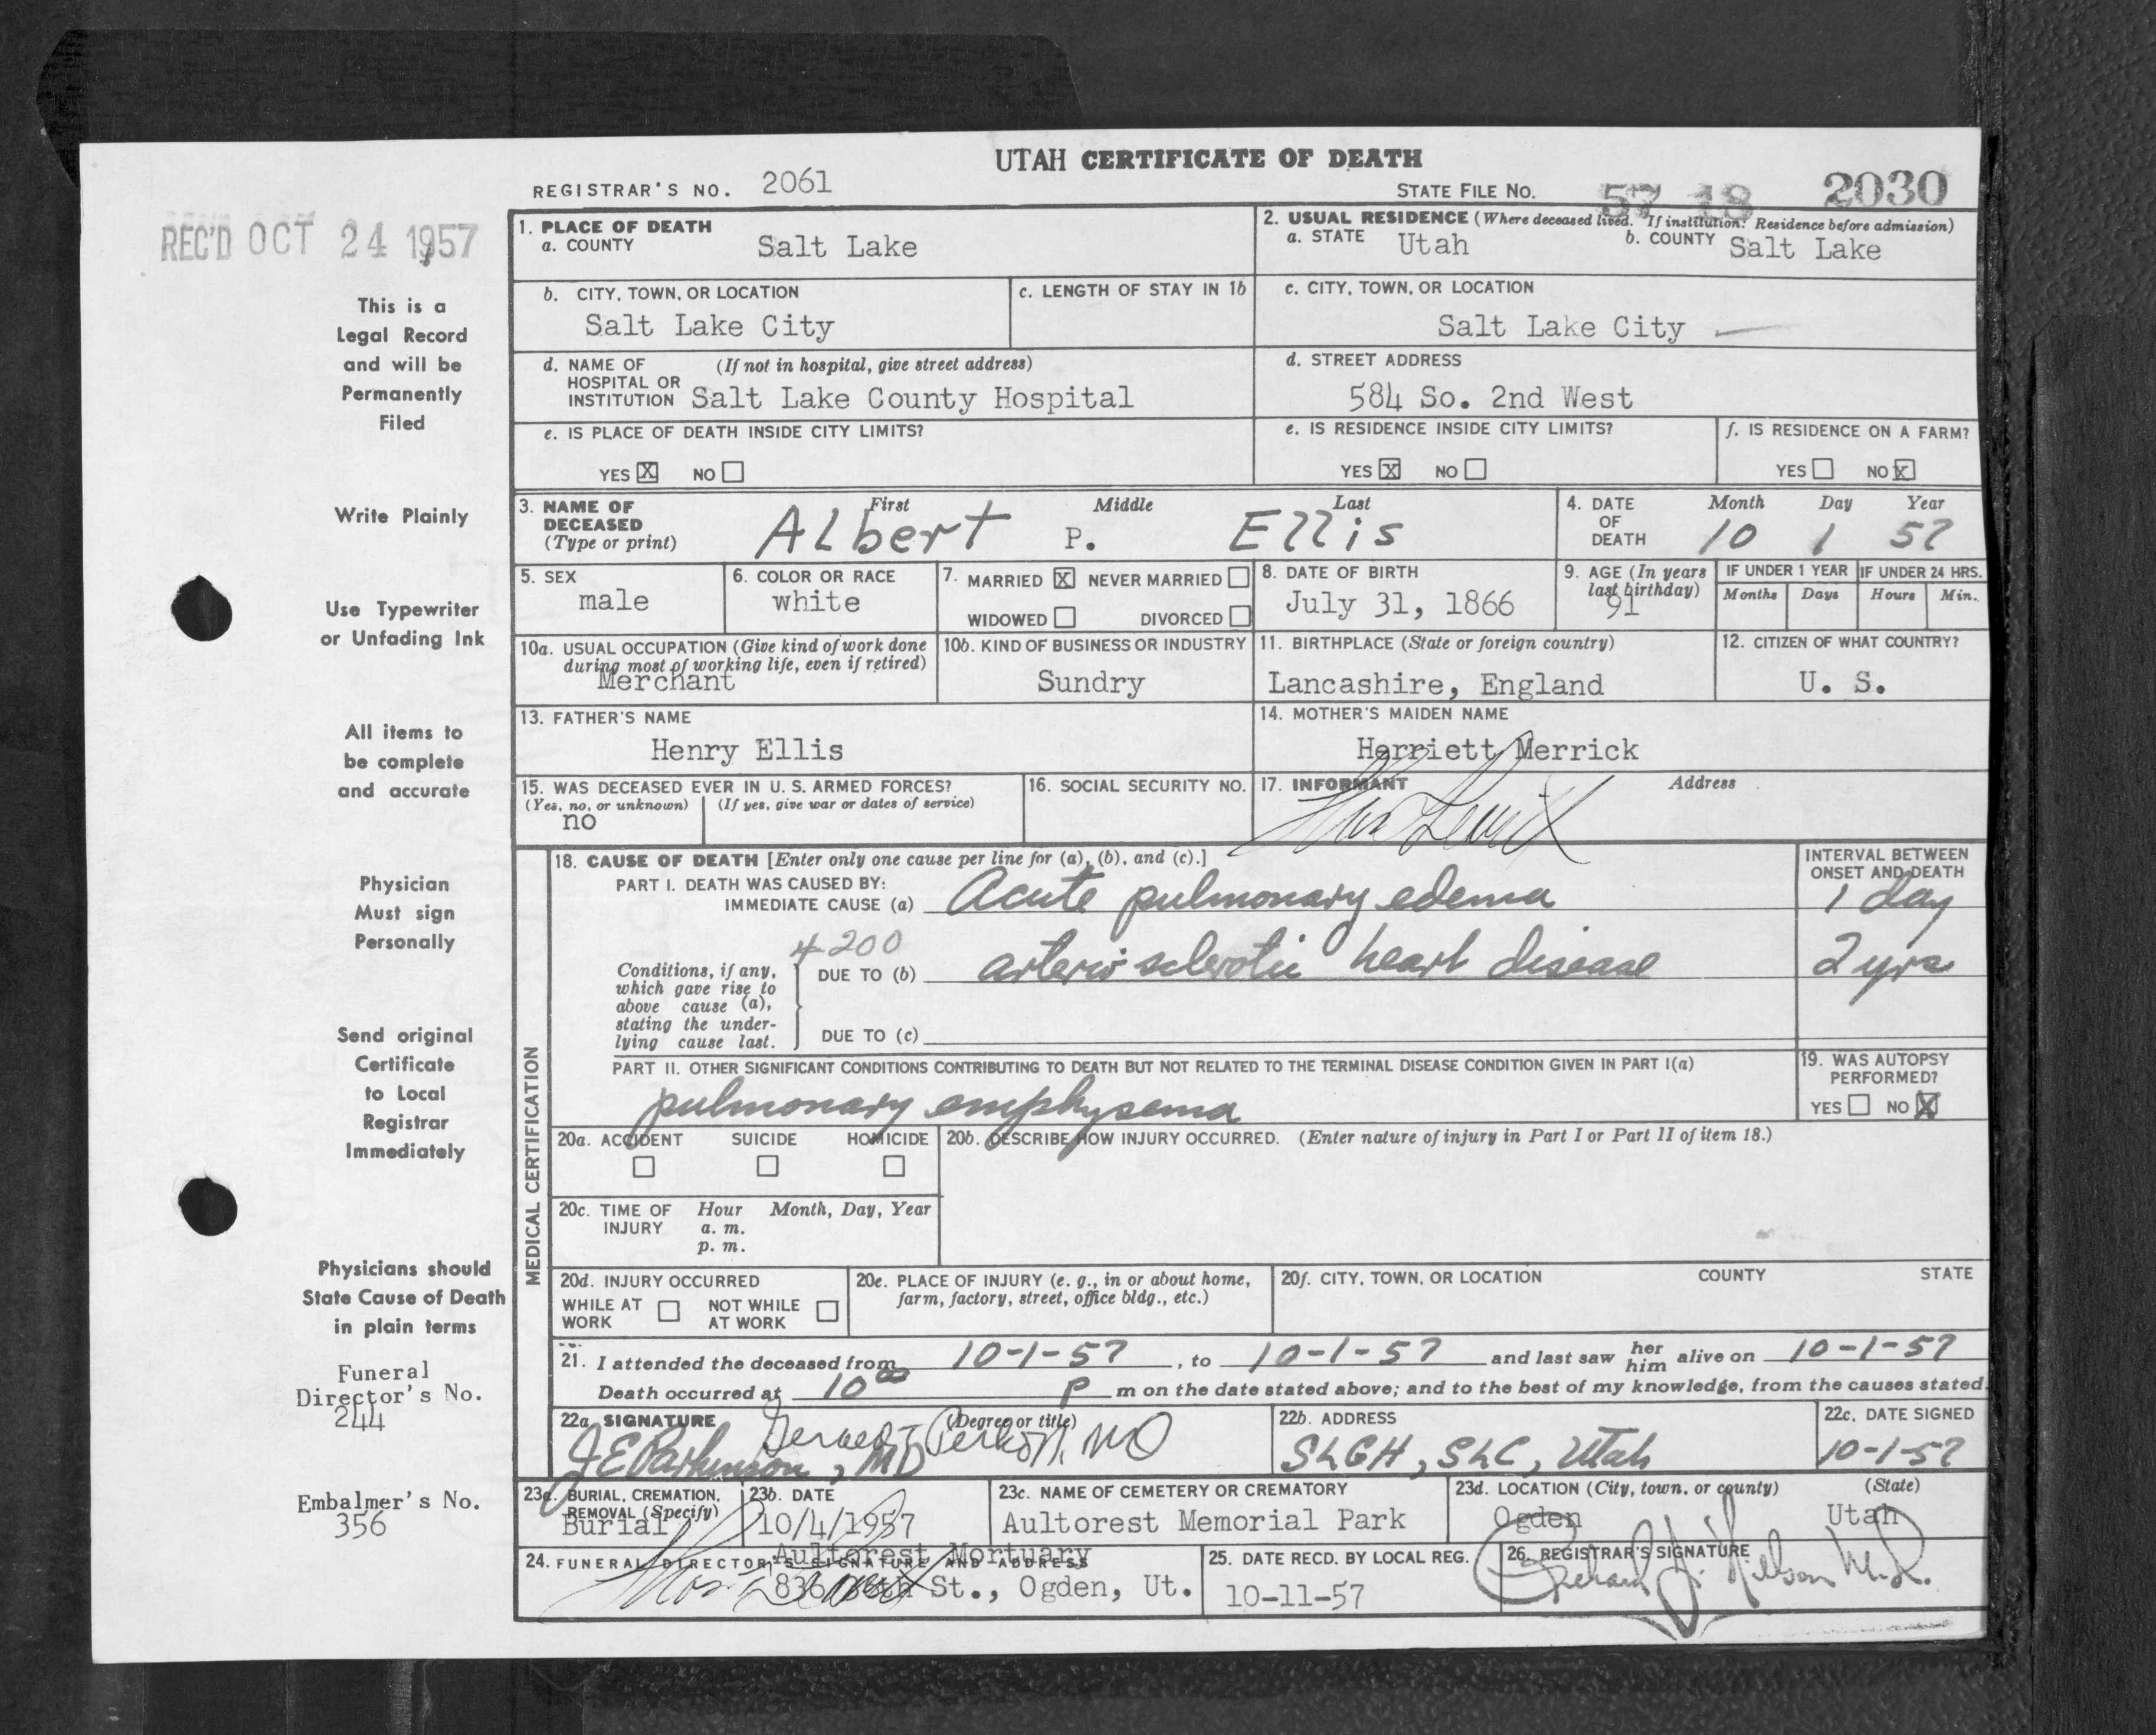 UTAH CERTIFICATE OF DEATH
REGISTRAR'S NO. 2061
STATE FILE NO. 57 18 2030
REC'D OCT 24 1957
This is a
Legal Record
and will be
Permanently
Filed
Write Plainly
Use Typewriter
or Unfading Ink
All items to
be complete
and accurate
Physician
Must sign
Personally
Send original
Certificate
to Local
Registrar
Immediately
Physicians should
State Cause of Death
in plain terms
Funeral
Director's No.
244
Embalmer's No.
356
1. PLACE OF DEATH
a. COUNTY Salt Lake
2. USUAL RESIDENCE (Where deceased lived. If institution: Residence before admission)
a. STATE Utah b. COUNTY Salt Lake
b. CITY, TOWN, OR LOCATION
Salt Lake City
c. LENGTH OF STAY IN 1b
c. CITY, TOWN, OR LOCATION
Salt Lake City
d. NAME OF (If not in hospital, give street address)
HOSPITAL OR
INSTITUTION Salt Lake County Hospital
d. STREET ADDRESS
584 So. 2nd West
e. IS PLACE OF DEATH INSIDE CITY LIMITS?
YES X NO
e. IS RESIDENCE INSIDE CITY LIMITS?
YES X NO
f. IS RESIDENCE ON A FARM?
YES NO X
3. NAME OF
DECEASED
(Type or print)
First Middle Last
Albert P. Ellis
4. DATE
OF
DEATH
Month Day Year
10 1 57
5. SEX
male
6. COLOR OR RACE
white
7. MARRIED X NEVER MARRIED
WIDOWED DIVORCED
8. DATE OF BIRTH
July 31, 1866
9. AGE (In years
last birthday)
91
IF UNDER 1 YEAR IF UNDER 24 HRS.
Months Days Hours Min.
10a. USUAL OCCUPATION (Give kind of work done
during most of working life, even if retired)
Merchant
10b. KIND OF BUSINESS OR INDUSTRY
Sundry
11. BIRTHPLACE (State or foreign country)
Lancashire, England
12. CITIZEN OF WHAT COUNTRY?
U. S.
13. FATHER'S NAME
Henry Ellis
14. MOTHER'S MAIDEN NAME
Herriett Merrick
15. WAS DECEASED EVER IN U. S. ARMED FORCES?
(Yes, no, or unknown) (If yes, give war or dates of service)
no
16. SOCIAL SECURITY NO.
17. INFORMANT Address
MEDICAL CERTIFICATION
18. CAUSE OF DEATH [Enter only one cause per line for (a), (b), and (c).]
PART I. DEATH WAS CAUSED BY:
IMMEDIATE CAUSE (a) Acute pulmonary edema
INTERVAL BETWEEN
ONSET AND DEATH
1 day
4200
Conditions, if any,
which gave rise to
above cause (a),
stating the under-
lying cause last.
DUE TO (b) arterio sclerotic heart disease
2 yrs
DUE TO (c)
PART II. OTHER SIGNIFICANT CONDITIONS CONTRIBUTING TO DEATH BUT NOT RELATED TO THE TERMINAL DISEASE CONDITION GIVEN IN PART I(a)
pulmonary emphysema
19. WAS AUTOPSY
PERFORMED?
YES NO X
20a. ACCIDENT SUICIDE HOMICIDE
20b. DESCRIBE HOW INJURY OCCURRED. (Enter nature of injury in Part I or Part II of item 18.)
20c. TIME OF
INJURY
Hour Month, Day, Year
a. m.
p. m.
20d. INJURY OCCURRED
WHILE AT
WORK
NOT WHILE
AT WORK
20e. PLACE OF INJURY (e. g., in or about home,
farm, factory, street, office bldg., etc.)
20f. CITY, TOWN, OR LOCATION COUNTY STATE
21. I attended the deceased from 10-1-57, to 10-1-57 and last saw her him alive on 10-1-57
Death occurred at 10 00 P m on the date stated above; and to the best of my knowledge, from the causes stated.
22a. SIGNATURE (Degree or title)
J E Parkinson, MD
MD
22b. ADDRESS
SLGH, SLC, Utah
22c. DATE SIGNED
10-1-57
23a. BURIAL, CREMATION,
REMOVAL (Specify)
Burial
23b. DATE
10/4/1957
23c. NAME OF CEMETERY OR CREMATORY
Aultorest Memorial Park
23d. LOCATION (City, town, or county) (State)
Ogden Utah
24. FUNERAL DIRECTOR'S SIGNATURE AND ADDRESS
Aultorest Mortuary
836 36th St., Ogden, Ut.
25. DATE RECD. BY LOCAL REG.
10-11-57
26. REGISTRAR'S SIGNATURE